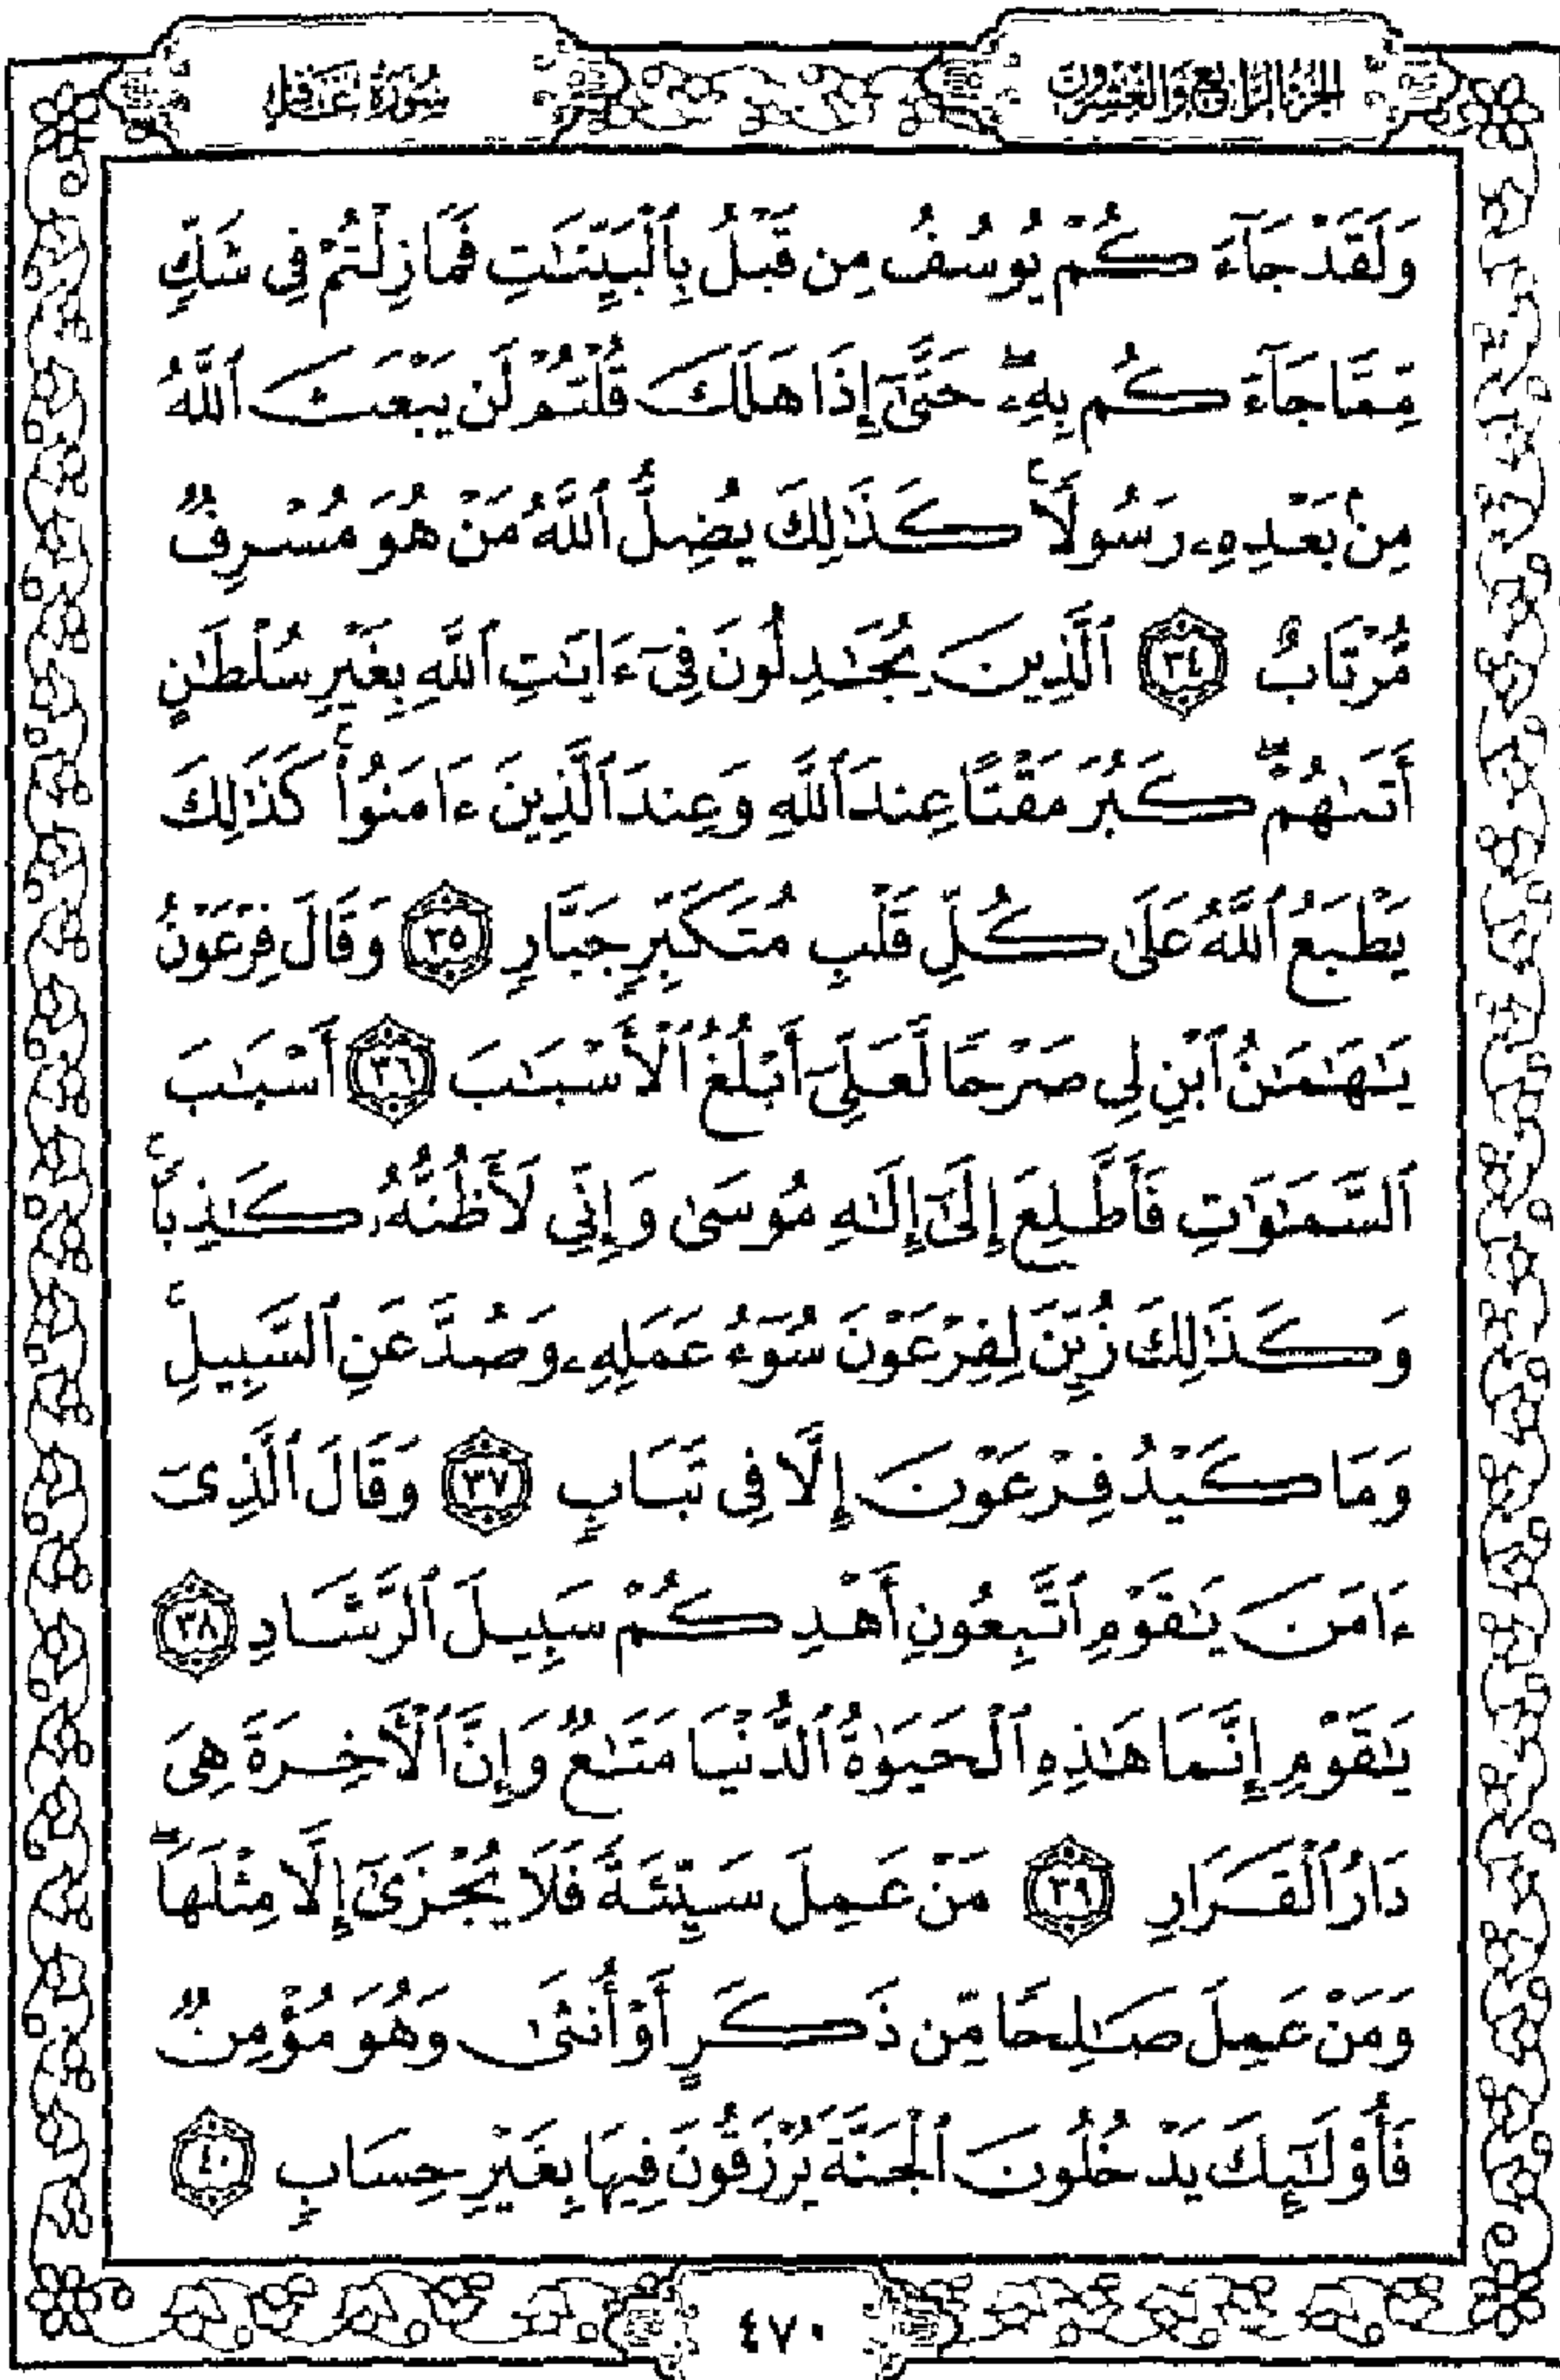 الجزء الرابع والعشرون
سورة غافر
وَلَقَدْ جَآءَكُمْ يُوسُفُ مِن قَبْلُ بِٱلْبَيِّنَٰتِ فَمَا زِلْتُمْ فِى شَكٍّ
مِّمَّا جَآءَكُم بِهِۦ ۖ حَتَّىٰٓ إِذَا هَلَكَ قُلْتُمْ لَن يَبْعَثَ ٱللَّهُ
مِنۢ بَعْدِهِۦ رَسُولًا ۚ كَذَٰلِكَ يُضِلُّ ٱللَّهُ مَنْ هُوَ مُسْرِفٌ
مُّرْتَابٌ ٣٤ ٱلَّذِينَ يُجَٰدِلُونَ فِىٓ ءَايَٰتِ ٱللَّهِ بِغَيْرِ سُلْطَٰنٍ
أَتَىٰهُمْ ۖ كَبُرَ مَقْتًا عِندَ ٱللَّهِ وَعِندَ ٱلَّذِينَ ءَامَنُوا۟ ۚ كَذَٰلِكَ
يَطْبَعُ ٱللَّهُ عَلَىٰ كُلِّ قَلْبِ مُتَكَبِّرٍ جَبَّارٍ ٣٥ وَقَالَ فِرْعَوْنُ
يَٰهَٰمَٰنُ ٱبْنِ لِى صَرْحًا لَّعَلِّىٓ أَبْلُغُ ٱلْأَسْبَٰبَ ٣٦ أَسْبَٰبَ
ٱلسَّمَٰوَٰتِ فَأَطَّلِعَ إِلَىٰٓ إِلَٰهِ مُوسَىٰ وَإِنِّى لَأَظُنُّهُۥ كَٰذِبًا ۚ
وَكَذَٰلِكَ زُيِّنَ لِفِرْعَوْنَ سُوٓءُ عَمَلِهِۦ وَصُدَّ عَنِ ٱلسَّبِيلِ ۚ
وَمَا كَيْدُ فِرْعَوْنَ إِلَّا فِى تَبَابٍ ٣٧ وَقَالَ ٱلَّذِىٓ
ءَامَنَ يَٰقَوْمِ ٱتَّبِعُونِ أَهْدِكُمْ سَبِيلَ ٱلرَّشَادِ ٣٨
يَٰقَوْمِ إِنَّمَا هَٰذِهِ ٱلْحَيَوٰةُ ٱلدُّنْيَا مَتَٰعٌ وَإِنَّ ٱلْءَاخِرَةَ هِىَ
دَارُ ٱلْقَرَارِ ٣٩ مَنْ عَمِلَ سَيِّئَةً فَلَا يُجْزَىٰٓ إِلَّا مِثْلَهَا ۖ
وَمَنْ عَمِلَ صَٰلِحًا مِّن ذَكَرٍ أَوْ أُنثَىٰ وَهُوَ مُؤْمِنٌ
فَأُو۟لَٰٓئِكَ يَدْخُلُونَ ٱلْجَنَّةَ يُرْزَقُونَ فِيهَا بِغَيْرِ حِسَابٍ ٤٠
٤٧٠